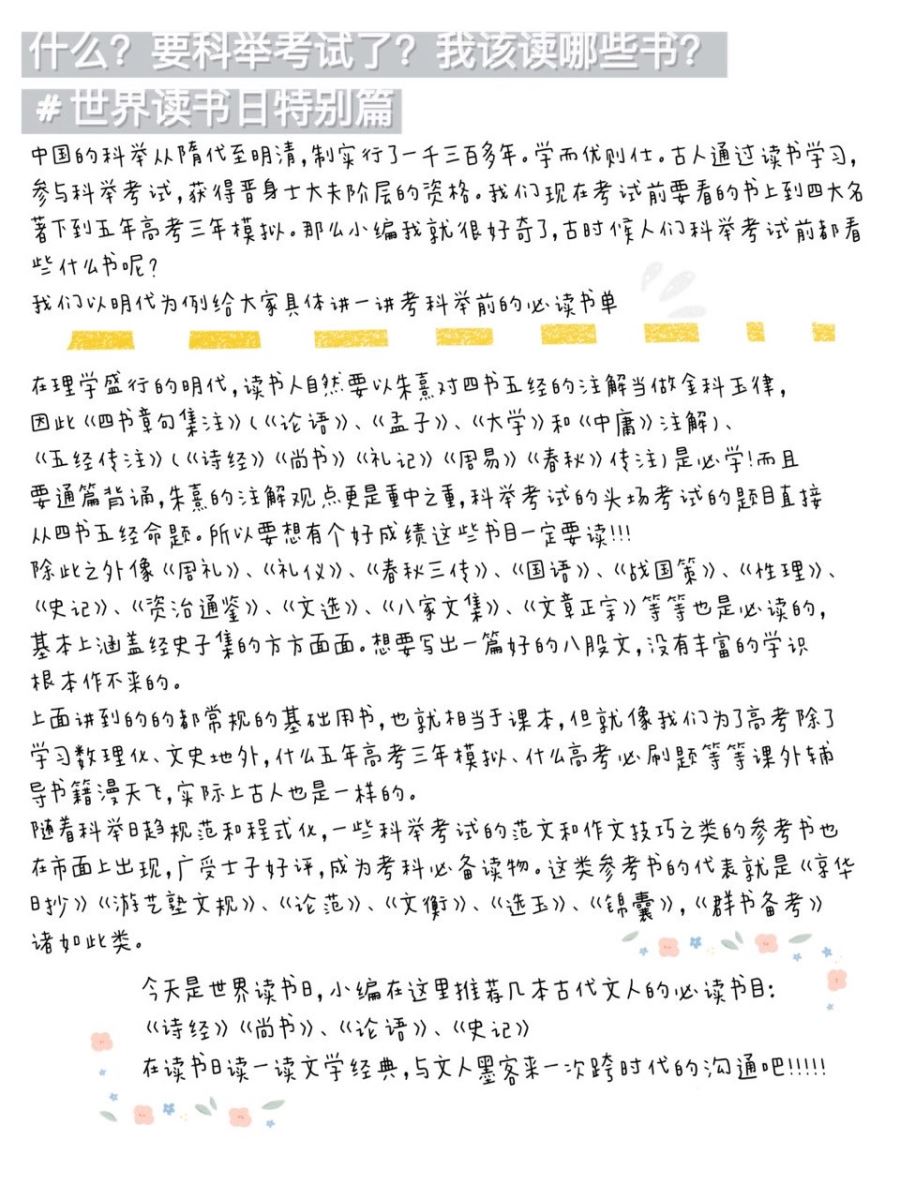 什么？要科举考试了？我该读哪些书？
#世界读书日特别篇
中国的科举从隋代至明清，制实行了一千三百多年。学而优则仕。古人通过读书学习，
参与科举考试，获得晋身士大夫阶层的资格。我们现在考试前要看的书上到四大名
著下到五年高考三年模拟。那么小编我就很好奇了，古时候人们科举考试前都看
些什么书呢？
我们以明代为例给大家具体讲一讲考科举前的必读书单
在理学盛行的明代，读书人自然要以朱熹对四书五经的注解当做金科玉律，
因此《四书章句集注》（《论语》、《孟子》、《大学》和《中庸》注解）、
《五经传注》（《诗经》《尚书》《礼记》《周易》《春秋》传注）是必学！而且
要通篇背诵，朱熹的注解观点更是重中之重，科举考试的头场考试的题目直接
从四书五经命题。所以要想有个好成绩这些书目一定要读！！！
除此之外像《周礼》、《礼仪》、《春秋三传》、《国语》、《战国策》、《性理》、
《史记》、《资治通鉴》、《文选》、《八家文集》、《文章正宗》等等也是必读的，
基本上涵盖经史子集的方方面面。想要写出一篇好的八股文，没有丰富的学识
根本作不来的。
上面讲到的的都常规的基础用书，也就相当于课本，但就像我们为了高考除了
学习数理化、文史地外，什么五年高考三年模拟、什么高考必刷题等等课外辅
导书籍漫天飞，实际上古人也是一样的。
随着科举日趋规范和程式化，一些科举考试的范文和作文技巧之类的参考书也
在市面上出现，广受士子好评，成为考科必备读物。这类参考书的代表就是《享华
日抄》《游艺塾文规》、《论范》、《文衡》、《选玉》、《锦囊》，《群书备考》
诸如此类。
今天是世界读书日，小编在这里推荐几本古代文人的必读书目：
《诗经》《尚书》、《论语》、《史记》
在读书日读一读文学经典，与文人墨客来一次跨时代的沟通吧！！！！！